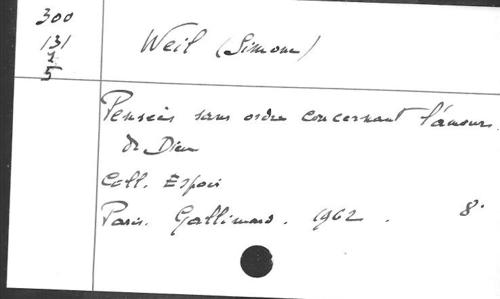 300
131
2
5
Weil (Simone)
Pensées sans ordre concernant l'amour
de Dieu
Coll. Espoir
Paris. Gallimard. 1962. 8°